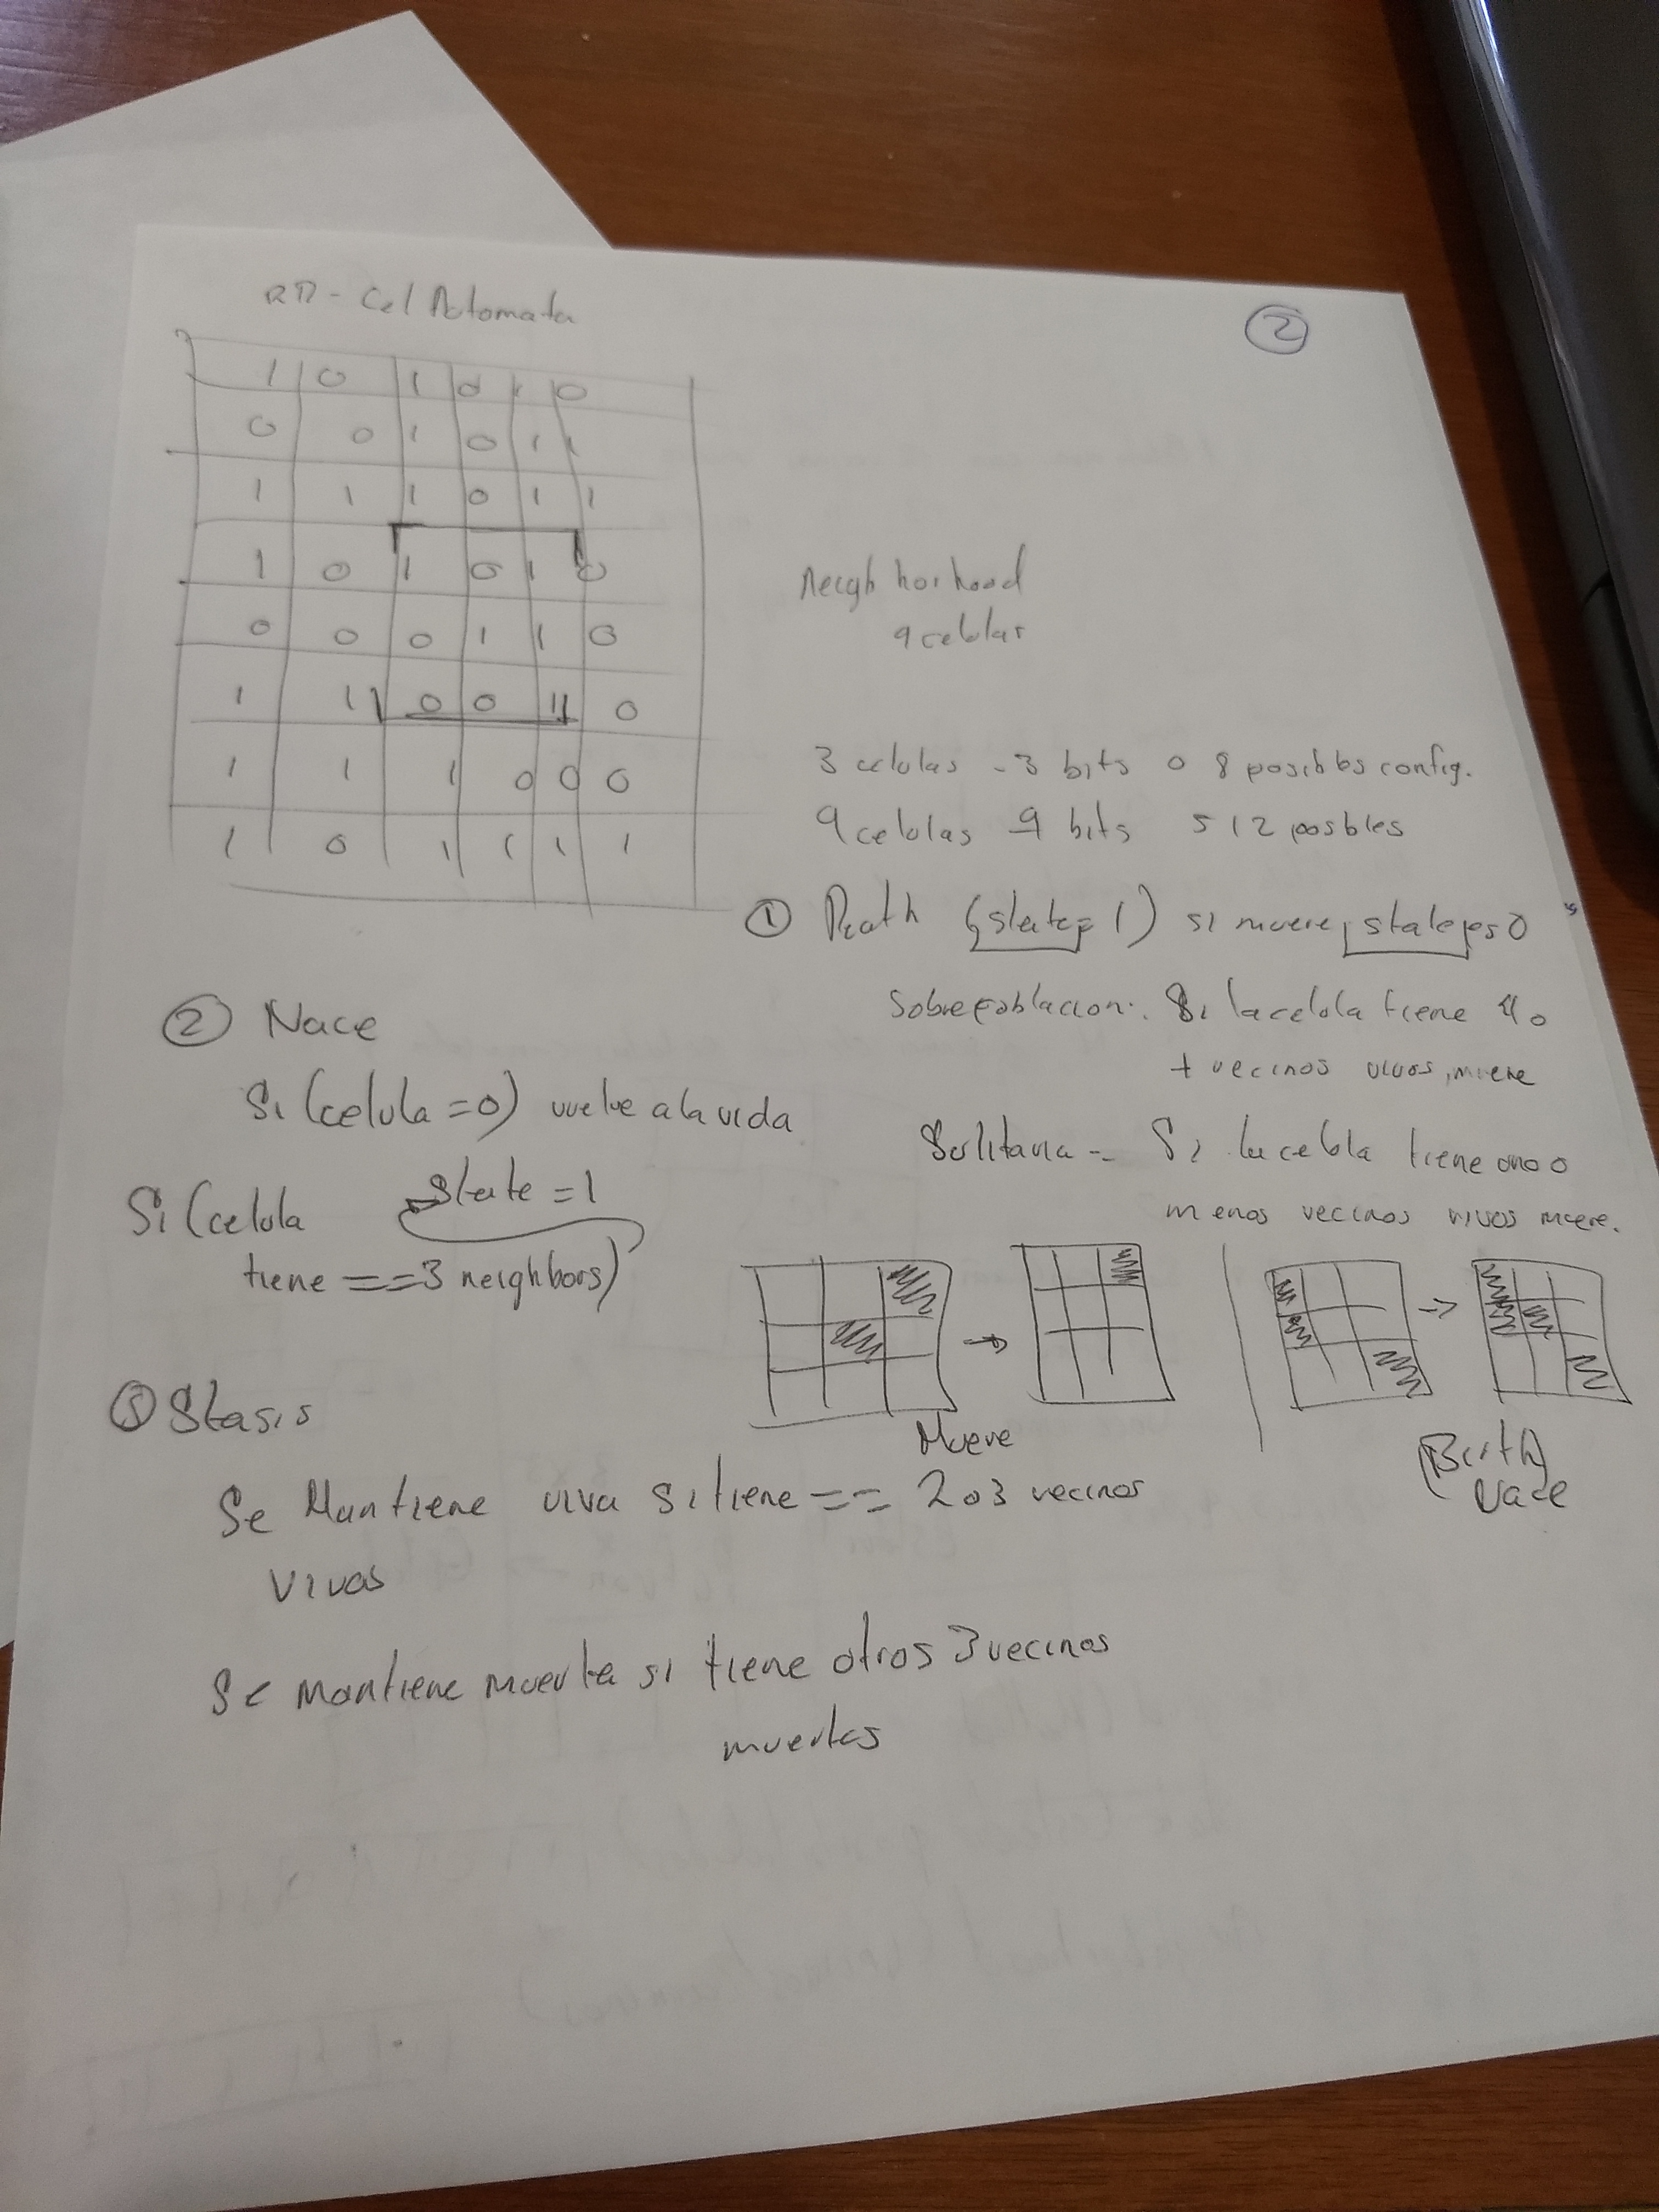 2D - Cel Automata
2
1 0 1 0 1 0
0 0 1 0 1 1
1 1 1 0 1 1
1 0 1 0 1 0
0 0 0 1 1 0
1 1 0 0 1 0
1 1 1 0 0 0
1 0 1 1 1 1
Neigh horhood
9 celulas
3 celulas - 3 bits o 8 posibles config.
9 celulas 9 bits 512 posbles
① Death (state = 1) si muere, state es 0
Sobrepoblacion: Si la celula tiene 4 o
+ vecinos vivos, muere
Solitaria - Si la celula tiene uno o
menos vecinos vivos muere.
② Nace
Si (celula = 0) vuelve a la vida
state = 1
Si (celula
tiene == 3 neighbors)
Muere
(Birth)
Nace
③ Stasis
Se Mantiene viva si tiene == 2 o 3 vecinos
vivos
Se mantiene muerta si tiene otros 3 vecinos
muertos